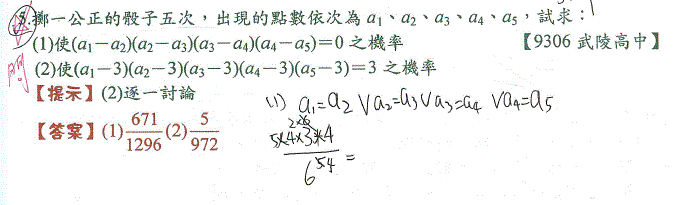 5.擲一公正的骰子五次,出現的點數依次為 a₁、a₂、a₃、a₄、a₅,試求:
(1)使(a₁−a₂)(a₂−a₃)(a₃−a₄)(a₄−a₅)=0 之機率 【9306 武陵高中】
(2)使(a₁−3)(a₂−3)(a₃−3)(a₄−3)(a₅−3)=3 之機率
【提示】(2)逐一討論
【答案】(1)671/1296 (2)5/972
(1) a₁=a₂ ∨a₂=a₃∨a₃=a₄ ∨a₄=a₅